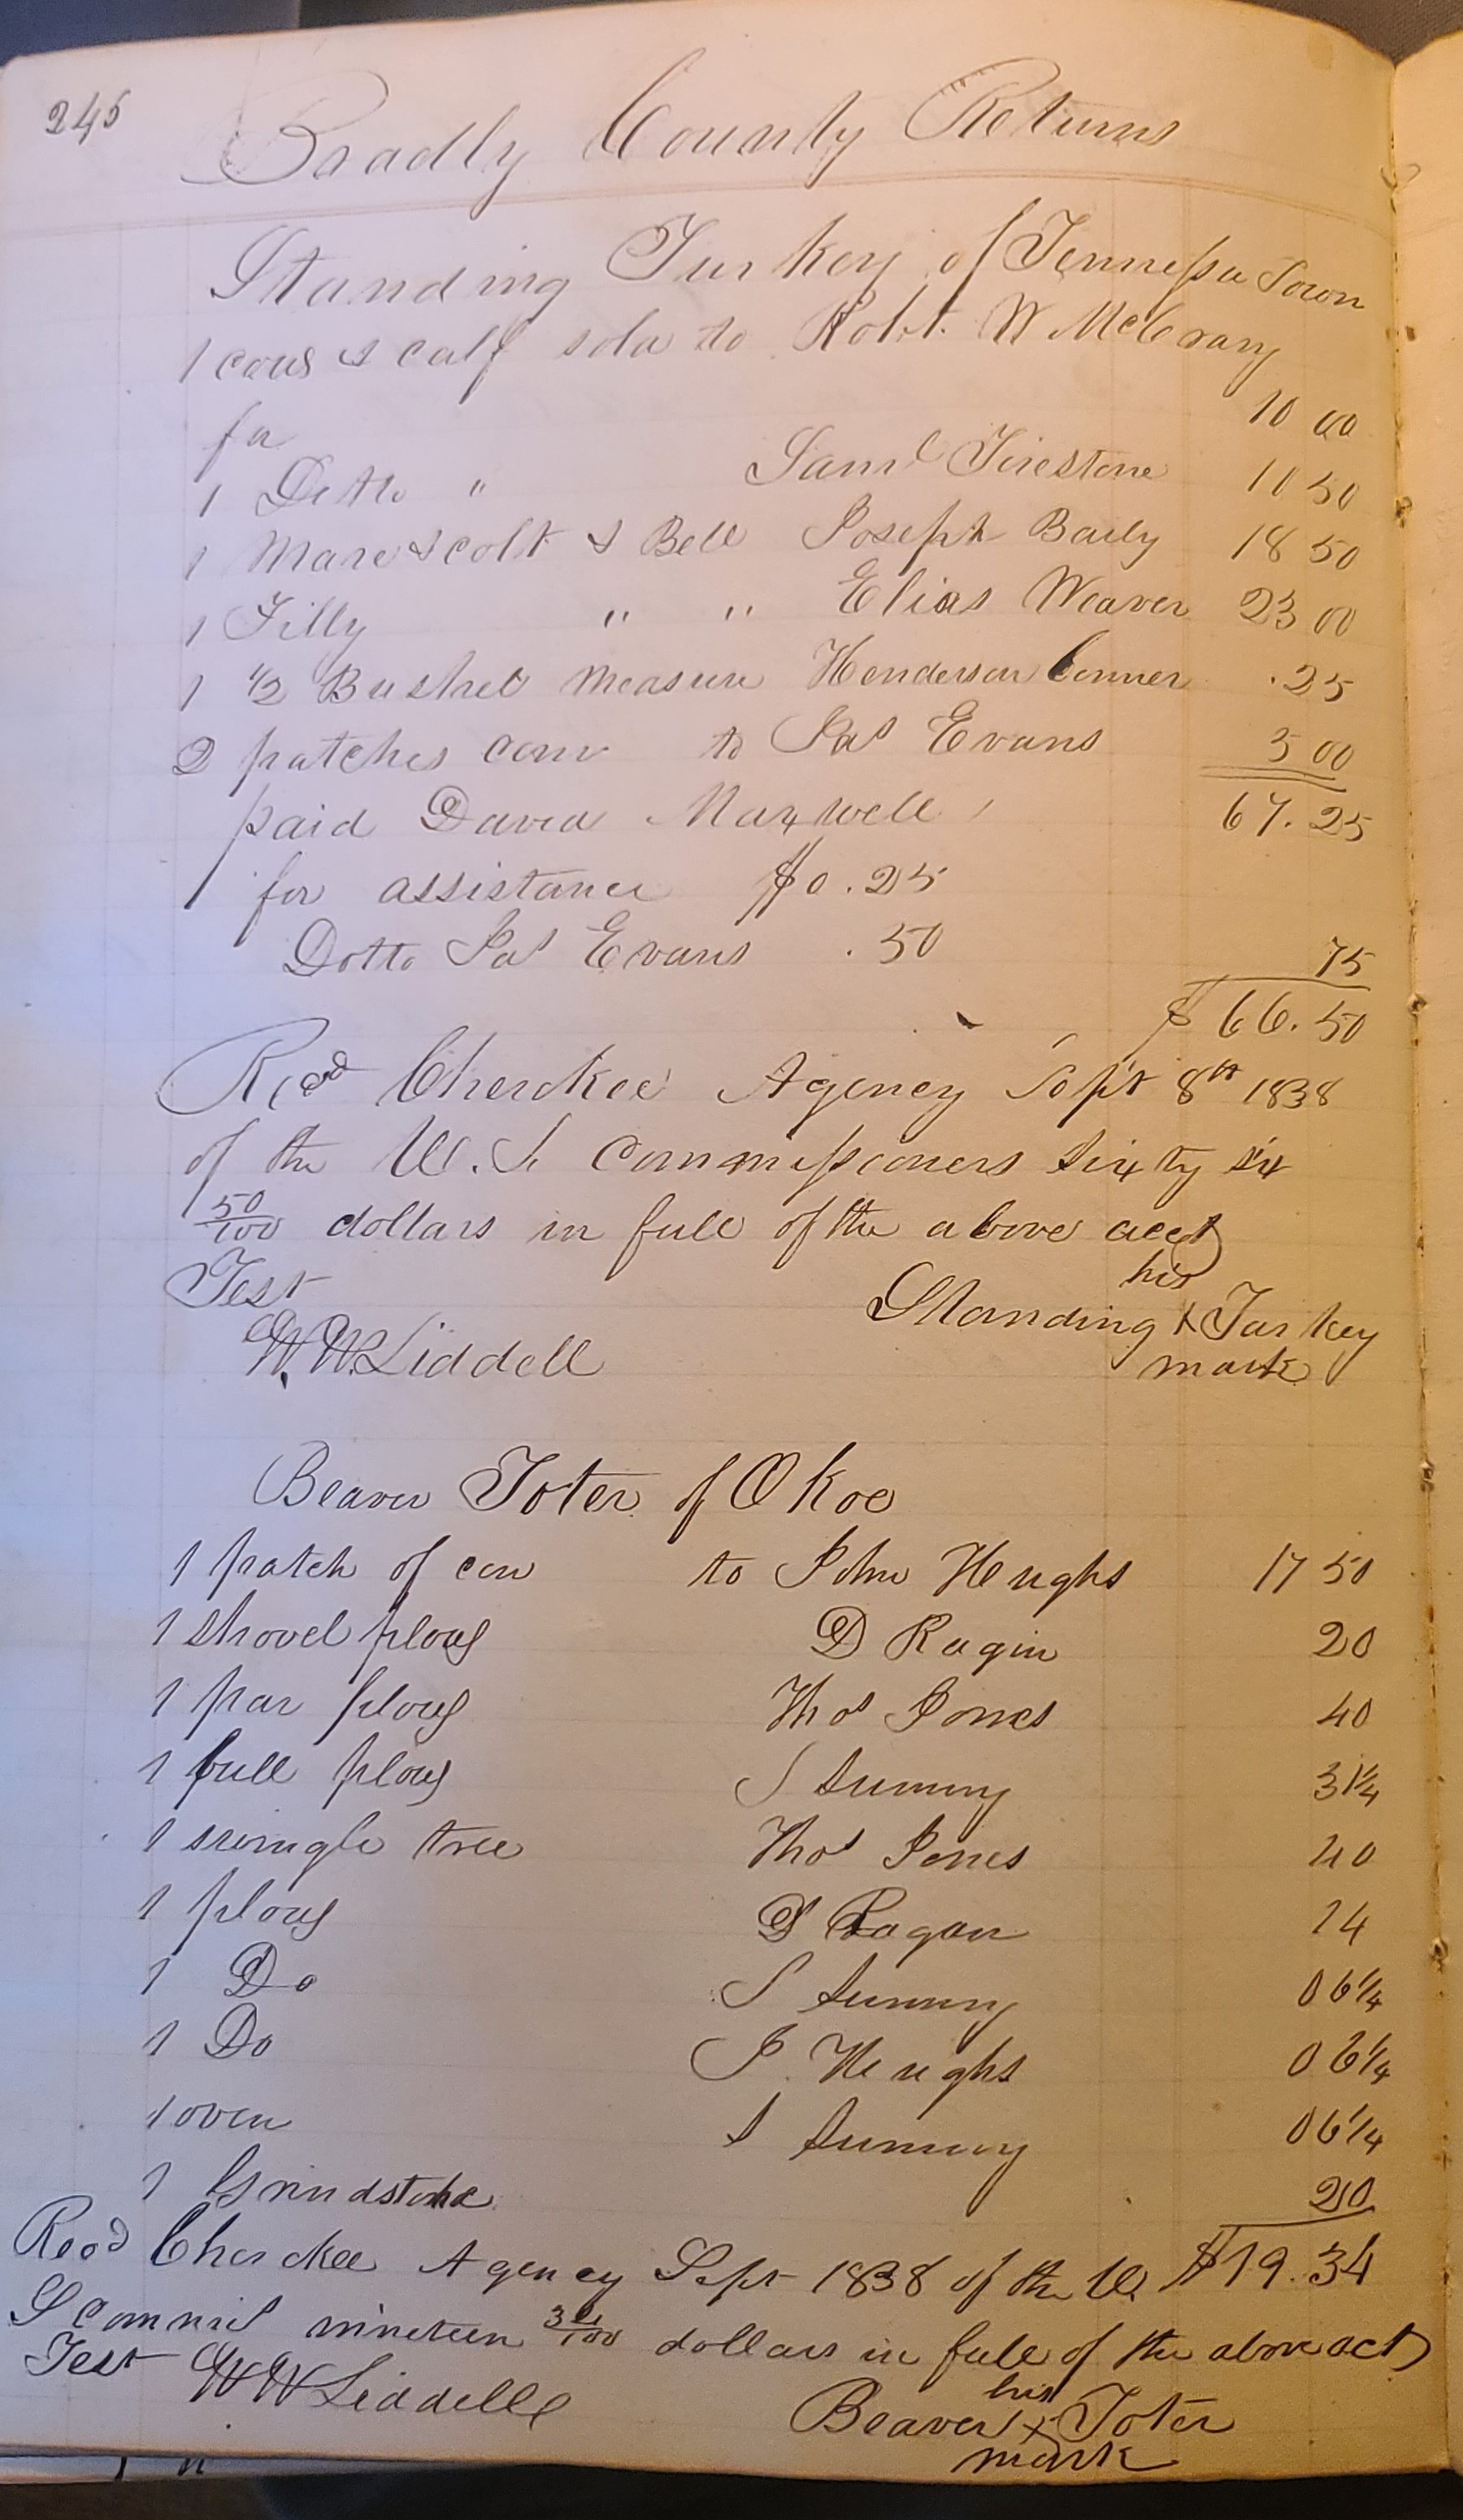 245
Bradly County Returns
Standing Turkey of Tennessee Town
1 cow & calf sold to Robt. W McCrary
for 10 00
1 Ditto " Saml Firestone 10 50
1 Mare & colt & Bell Joseph Baily 18 50
1 Filly " " Elias Weaver 23 00
1 1/2 Bushel measure Henderson Conner .25
2 patches corn to Jas Evans 5 00
paid David Maxwell 67.25
for assistance $0.25
Dotto Jas Evans .50 75
$66.50
Recd Cherokee Agency Sept 8th 1838
of the U.S. Commissioners sixty six
50/100 dollars in full of the above acct
Test his
W.W. Liddell Standing X Turkey
mark
Beaver Toter of Okoe
1 patch of corn to John Hughs 17 50
1 shovel plow D Ragin 20
1 par plow Thos Jones 40
1 bull plow S Summy 31 1/4
1 swingle tree Thos Jones 40
1 plow D Ragan 14
1 Do S Summy 06 1/4
1 Do J. Hughs 06 1/4
1 oven S Summy 06 1/4
1 Grindstone 20
Recd Cherokee Agency Sept 1838 of the U. $19.34
S Commis nineteen 34/100 dollars in full of the above act
Test W W Liddell his
Beaver X Toter
mark